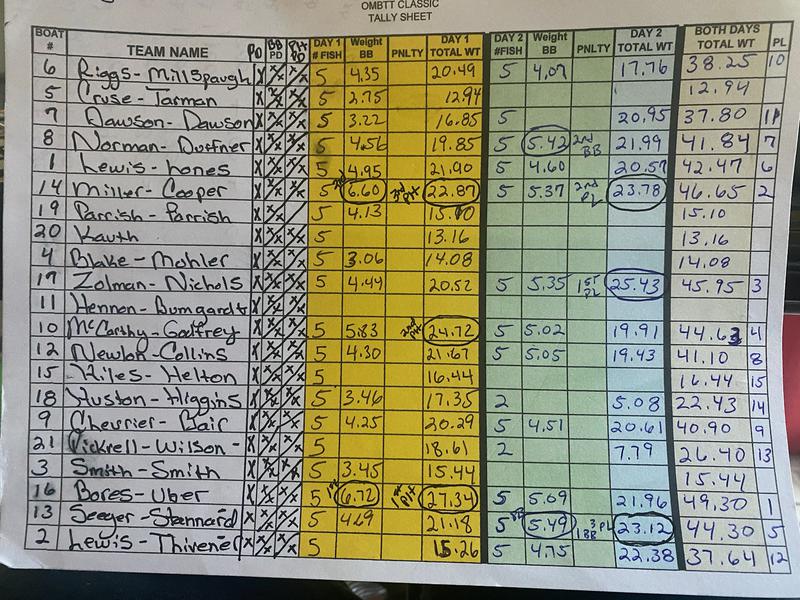 OMBTT CLASSIC
TALLY SHEET
BOAT # TEAM NAME PD BB PD DAY 1 # FISH Weight BB PNLTY DAY 1 TOTAL WT DAY 2 #FISH Weight BB PNLTY DAY 2 TOTAL WT BOTH DAYS TOTAL WT PL
6 Riggs-Millspaugh X 5 4.35 20.49 5 4.07 17.76 38.25 10
5 Cruse-Tarman X 5 2.75 12.94 12.94
7 Dawson-Dawson X 5 3.22 16.85 5 20.95 37.80 11
8 Norman-Durfner X 5 4.56 19.85 5 5.42 2nd BB 21.99 41.84 7
1 Lewis-Lones X 5 4.95 21.90 5 4.60 20.57 42.47 6
14 Miller-Cooper X 5 6.60 3rd 22.87 5 5.37 2nd PL 23.78 46.65 2
19 Parrish-Parrish X 5 4.13 15.10 15.10
20 Kauth X 5 13.16 13.16
4 Blake-Mohler X 5 3.06 14.08 14.08
17 Zolman-Nichols X 5 4.44 20.52 5 5.35 1st PL 25.43 45.95 3
11 Hennon-Bumgardt X
10 McCarthy-Godfrey X 5 5.83 2nd 24.72 5 5.02 19.91 44.63 4
12 Newlon-Collins X 5 4.30 21.67 5 5.05 19.43 41.10 8
15 Hiles-Helton X 5 16.44 16.44 15
18 Huston-Higgins X 5 3.46 17.35 2 5.08 22.43 14
9 Cheurier-Bair X 5 4.25 20.29 5 4.51 20.61 40.90 9
21 Pickrell-Wilson- X 5 18.61 2 7.79 26.40 13
3 Smith-Smith X 5 3.45 15.44 15.44
16 Bores-Uber X 5 1st 6.72 1st 27.34 5 5.09 21.96 49.30 1
13 Seeger-Stannard X 5 4.69 21.18 5 BB 5.49 1 BB 3 PL 23.12 44.30 5
2 Lewis-Thivener X 5 15.26 5 4.75 22.38 37.64 12